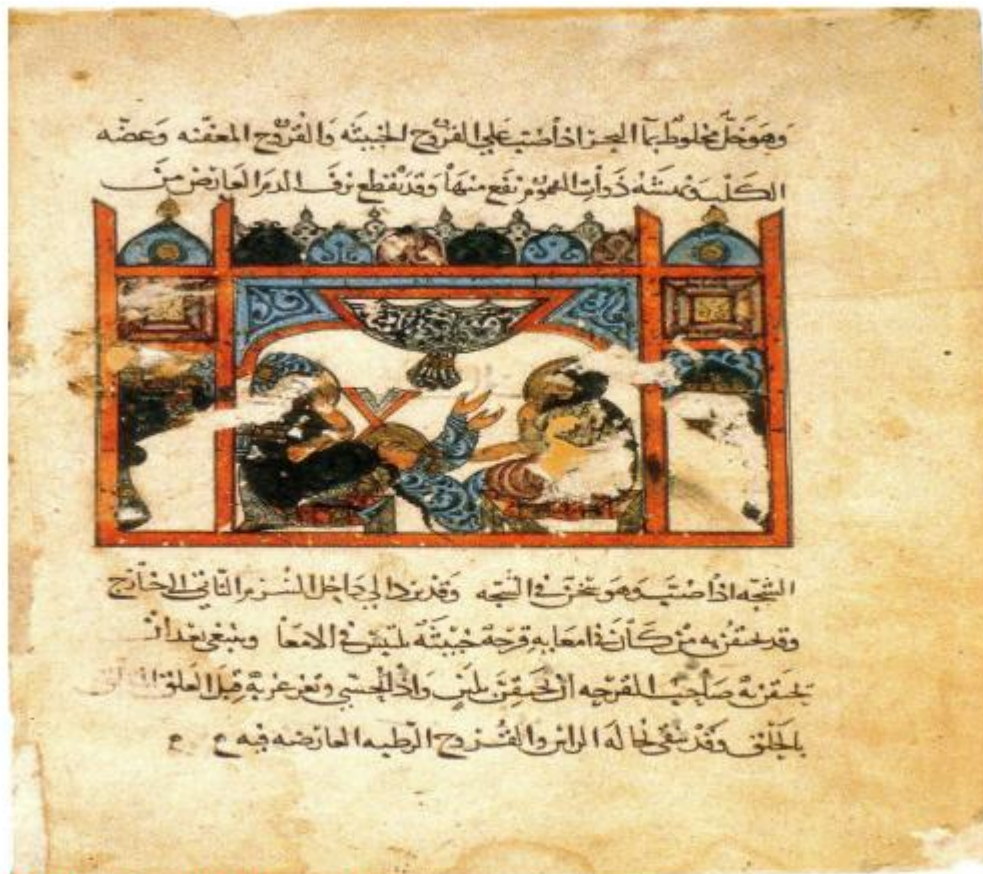 وهو خل مخلوط بماء البحر اذا صب علي القروح الخبيثه والقروح المعفنه وعضه
الكلب ونهشه ذوات السموم نفع منها وقد يقطع نزف الدم العارض من
الشجه اذا صب وهو سخن في الشجه وقد يرد الي داخل السرم الناتي الي خارج
وقد يحتقن به من كان في امعايه قرحه خبيثه في الامعا وينبغي بعد ان
يحتقن به صاحب القرحه ان يحتقن بلبن واذا تحسي وتغرغر به قتل العلق
بالحلق وقد ينقي نخاله الراس والقروح الرطبه العارضه فيه